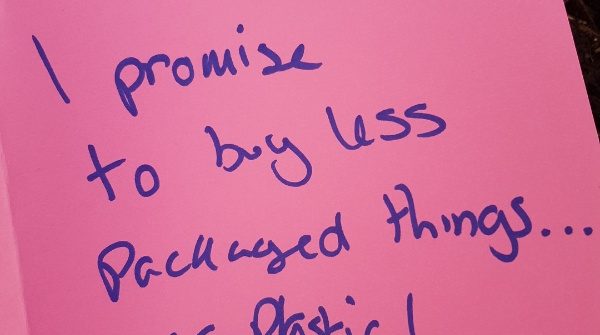 I promise
to buy less
Packaged things...
Plastic!